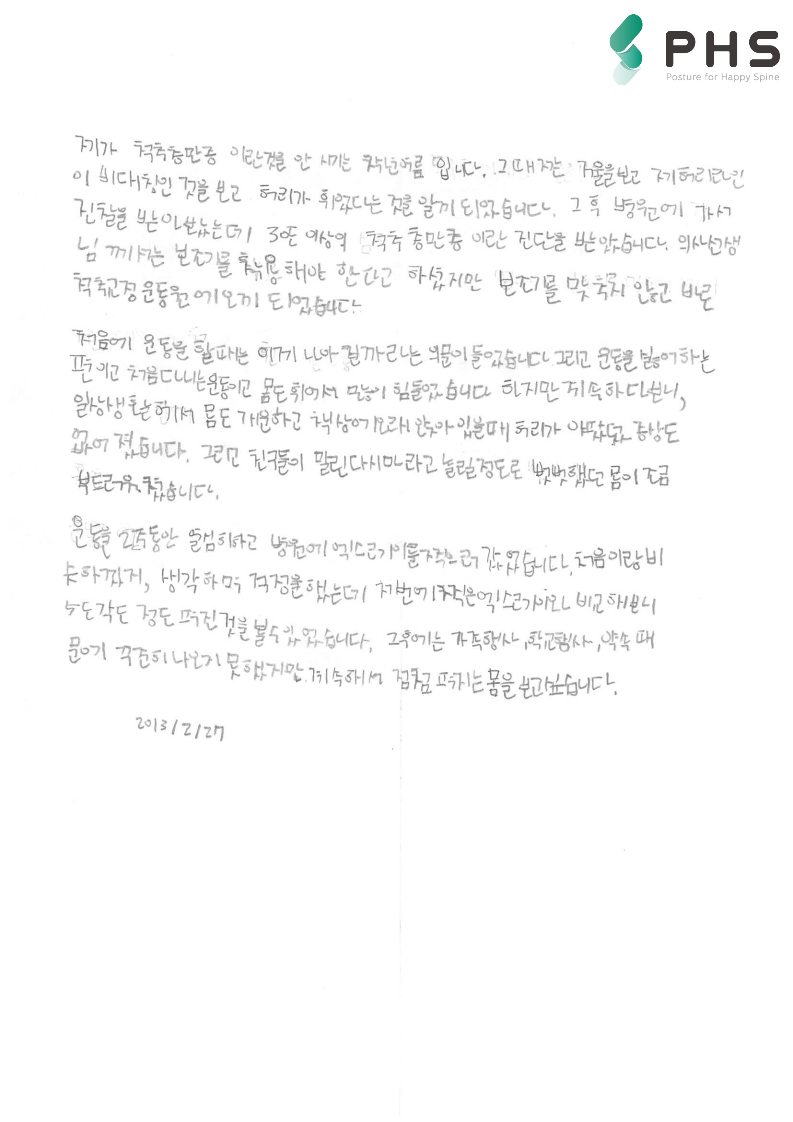 PHS
Posture for Happy Spine
제가 척추측만증 이란것을 안 시기는 작년여름 입니다. 그때 저는 거울을보고 제 허리라인
이 비대칭인 것을 보고 허리가 휘었다는 것을 알게 되었습니다. 그 후 병원에 가서
진찰을 받아보았는데 이상의 척추측만증 이란 진단을 받았습니다. 의사선생
님 께서는 보조기를 착용해야 한다고 하셨지만 보조기를 맞추지 않고 바로
척추교정운동원에오게 되었습니다.
처음에 운동을 할때는 언제 나아질까라는 의문이들었습니다 그리고 운동을 싫어하는
편이고 처음다니는운동이고 몸도휘어서 많이 힘들었습니다 하지만 계속하다보니,
일상생활에서 몸도 개운하고 책상에오래 앉아 있을때 허리가 아팠던 증상도
없어 졌습니다. 그리고 친구들이 말린다시마라고 놀릴정도로 뻣뻣했던 몸이 조금
부드러워 졌습니다.
운동을 2주동안 열심히하고 병원에 엑스레이를찍으러 갔었습니다. 처음이랑 비
슷하겠지, 생각하며 걱정을했는데 저번에찍은엑스레이와 비교해보니
5도각도 정도 펴진것을 볼수있었습니다. 그후에는 가족행사,학교행사,약속 때
문에 꾸준히나오지 못했지만 계속해서 점점 펴지는몸을보고싶습니다.
2013/2/27